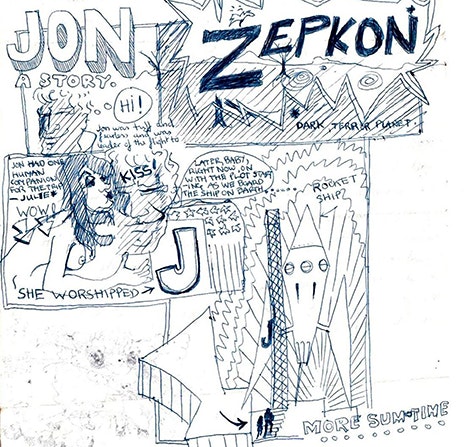 JON
A STORY.
Hi!
Jon was tuff and
was
leader of the flight to
ZEPKON
* DARK TERROR PLANET.
JON HAD ONE
HUMAN
COMPANION
FOR THE TRIP
— JULIE *
WOW!
KISS!
SHE WORSHIPPED →
J
LATER BABY,
RIGHT NOW ON
WITH THE PLOT START
ING AS WE BOARD
THE SHIP ON EARTH
ROCKET
SHIP
J
MORE SUM-TIME